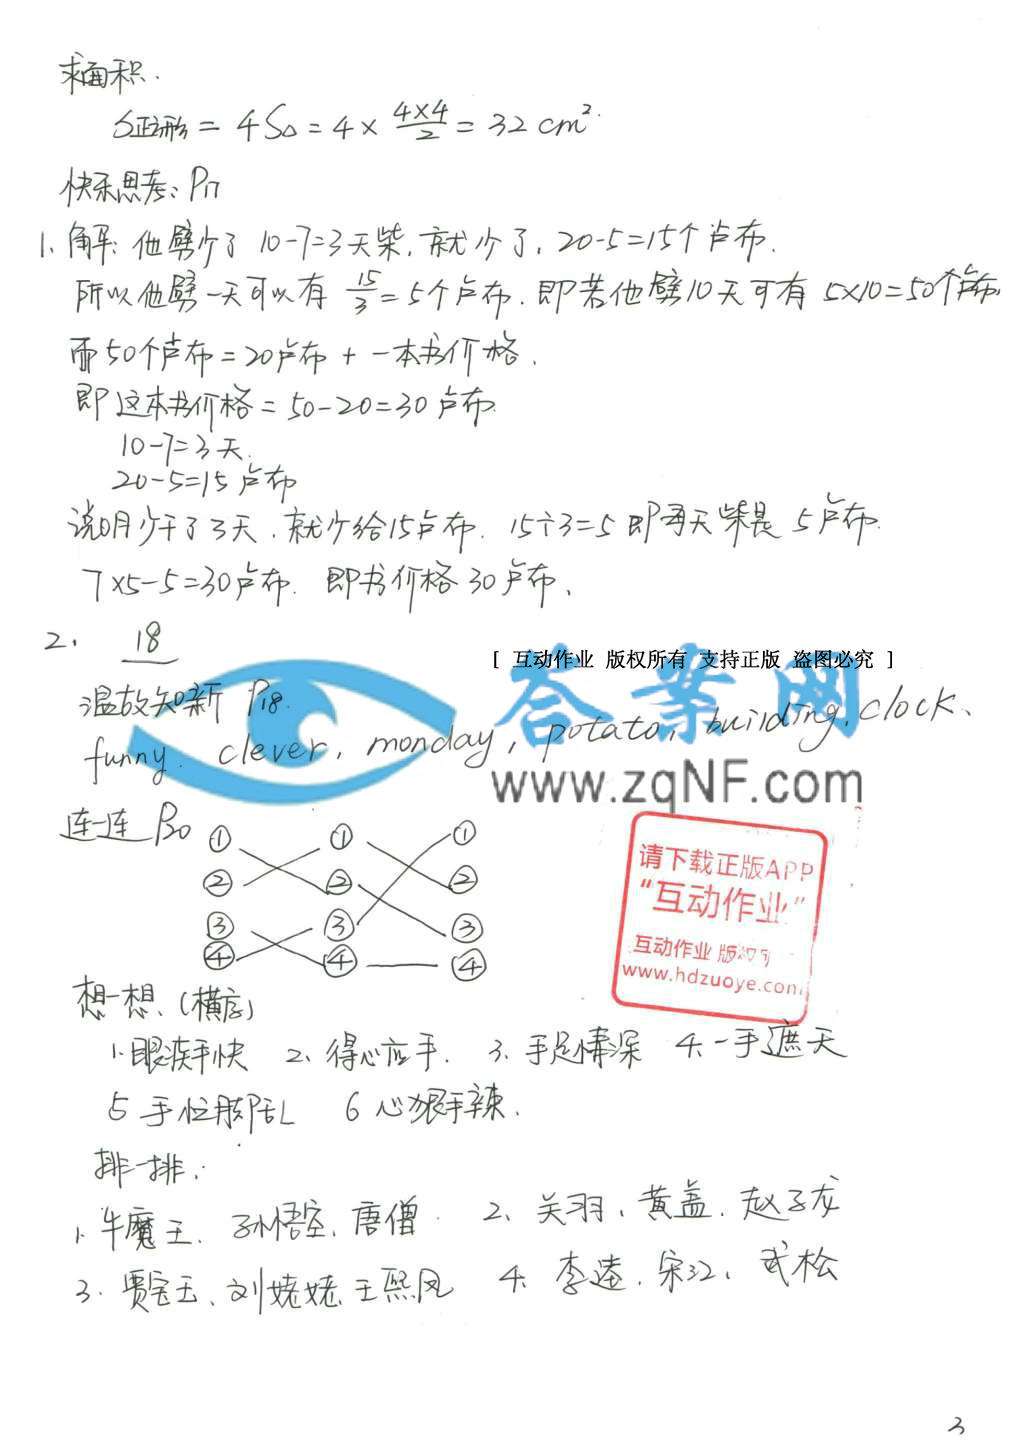 求面积.
S正方形 = 4S△ = 4 × 4×4/2 = 32 cm²
快乐思考: P17
1. 解: 他劈少了 10-7=3天柴, 就少了, 20-5=15个卢布.
所以他劈一天可以有 15/3 = 5个卢布. 即若他劈10天可有 5×10=50个卢布,
而50个卢布 = 20卢布 + 一本书价格.
即这本书价格 = 50-20=30卢布.
10-7=3天.
20-5=15卢布
说明少干了3天, 就少给15卢布. 15÷3=5 即每天柴是 5卢布.
7×5-5=30卢布. 即书价格30卢布.
2. 18
[ 互动作业 版权所有 支持正版 盗图必究 ]
答案网
www.zqNF.com
温故知新 P18.
funny. clever, monday, potato, building, clock.
连一连 P20
① ① ①
② ② ②
③ ③ ③
④ ④ ④
请下载正版APP
“互动作业”
互动作业 版权
www.hdzuoye.com
想一想. (横店)
1. 眼疾手快 2. 得心应手. 3. 手足情深 4. 一手遮天
5 手忙脚乱 6 心狠手辣.
排一排:
1. 牛魔王. 孙悟空, 唐僧. 2. 关羽, 黄盖. 赵子龙
3. 贾宝玉、刘姥姥、王熙凤 4. 李逵. 宋江, 武松
3